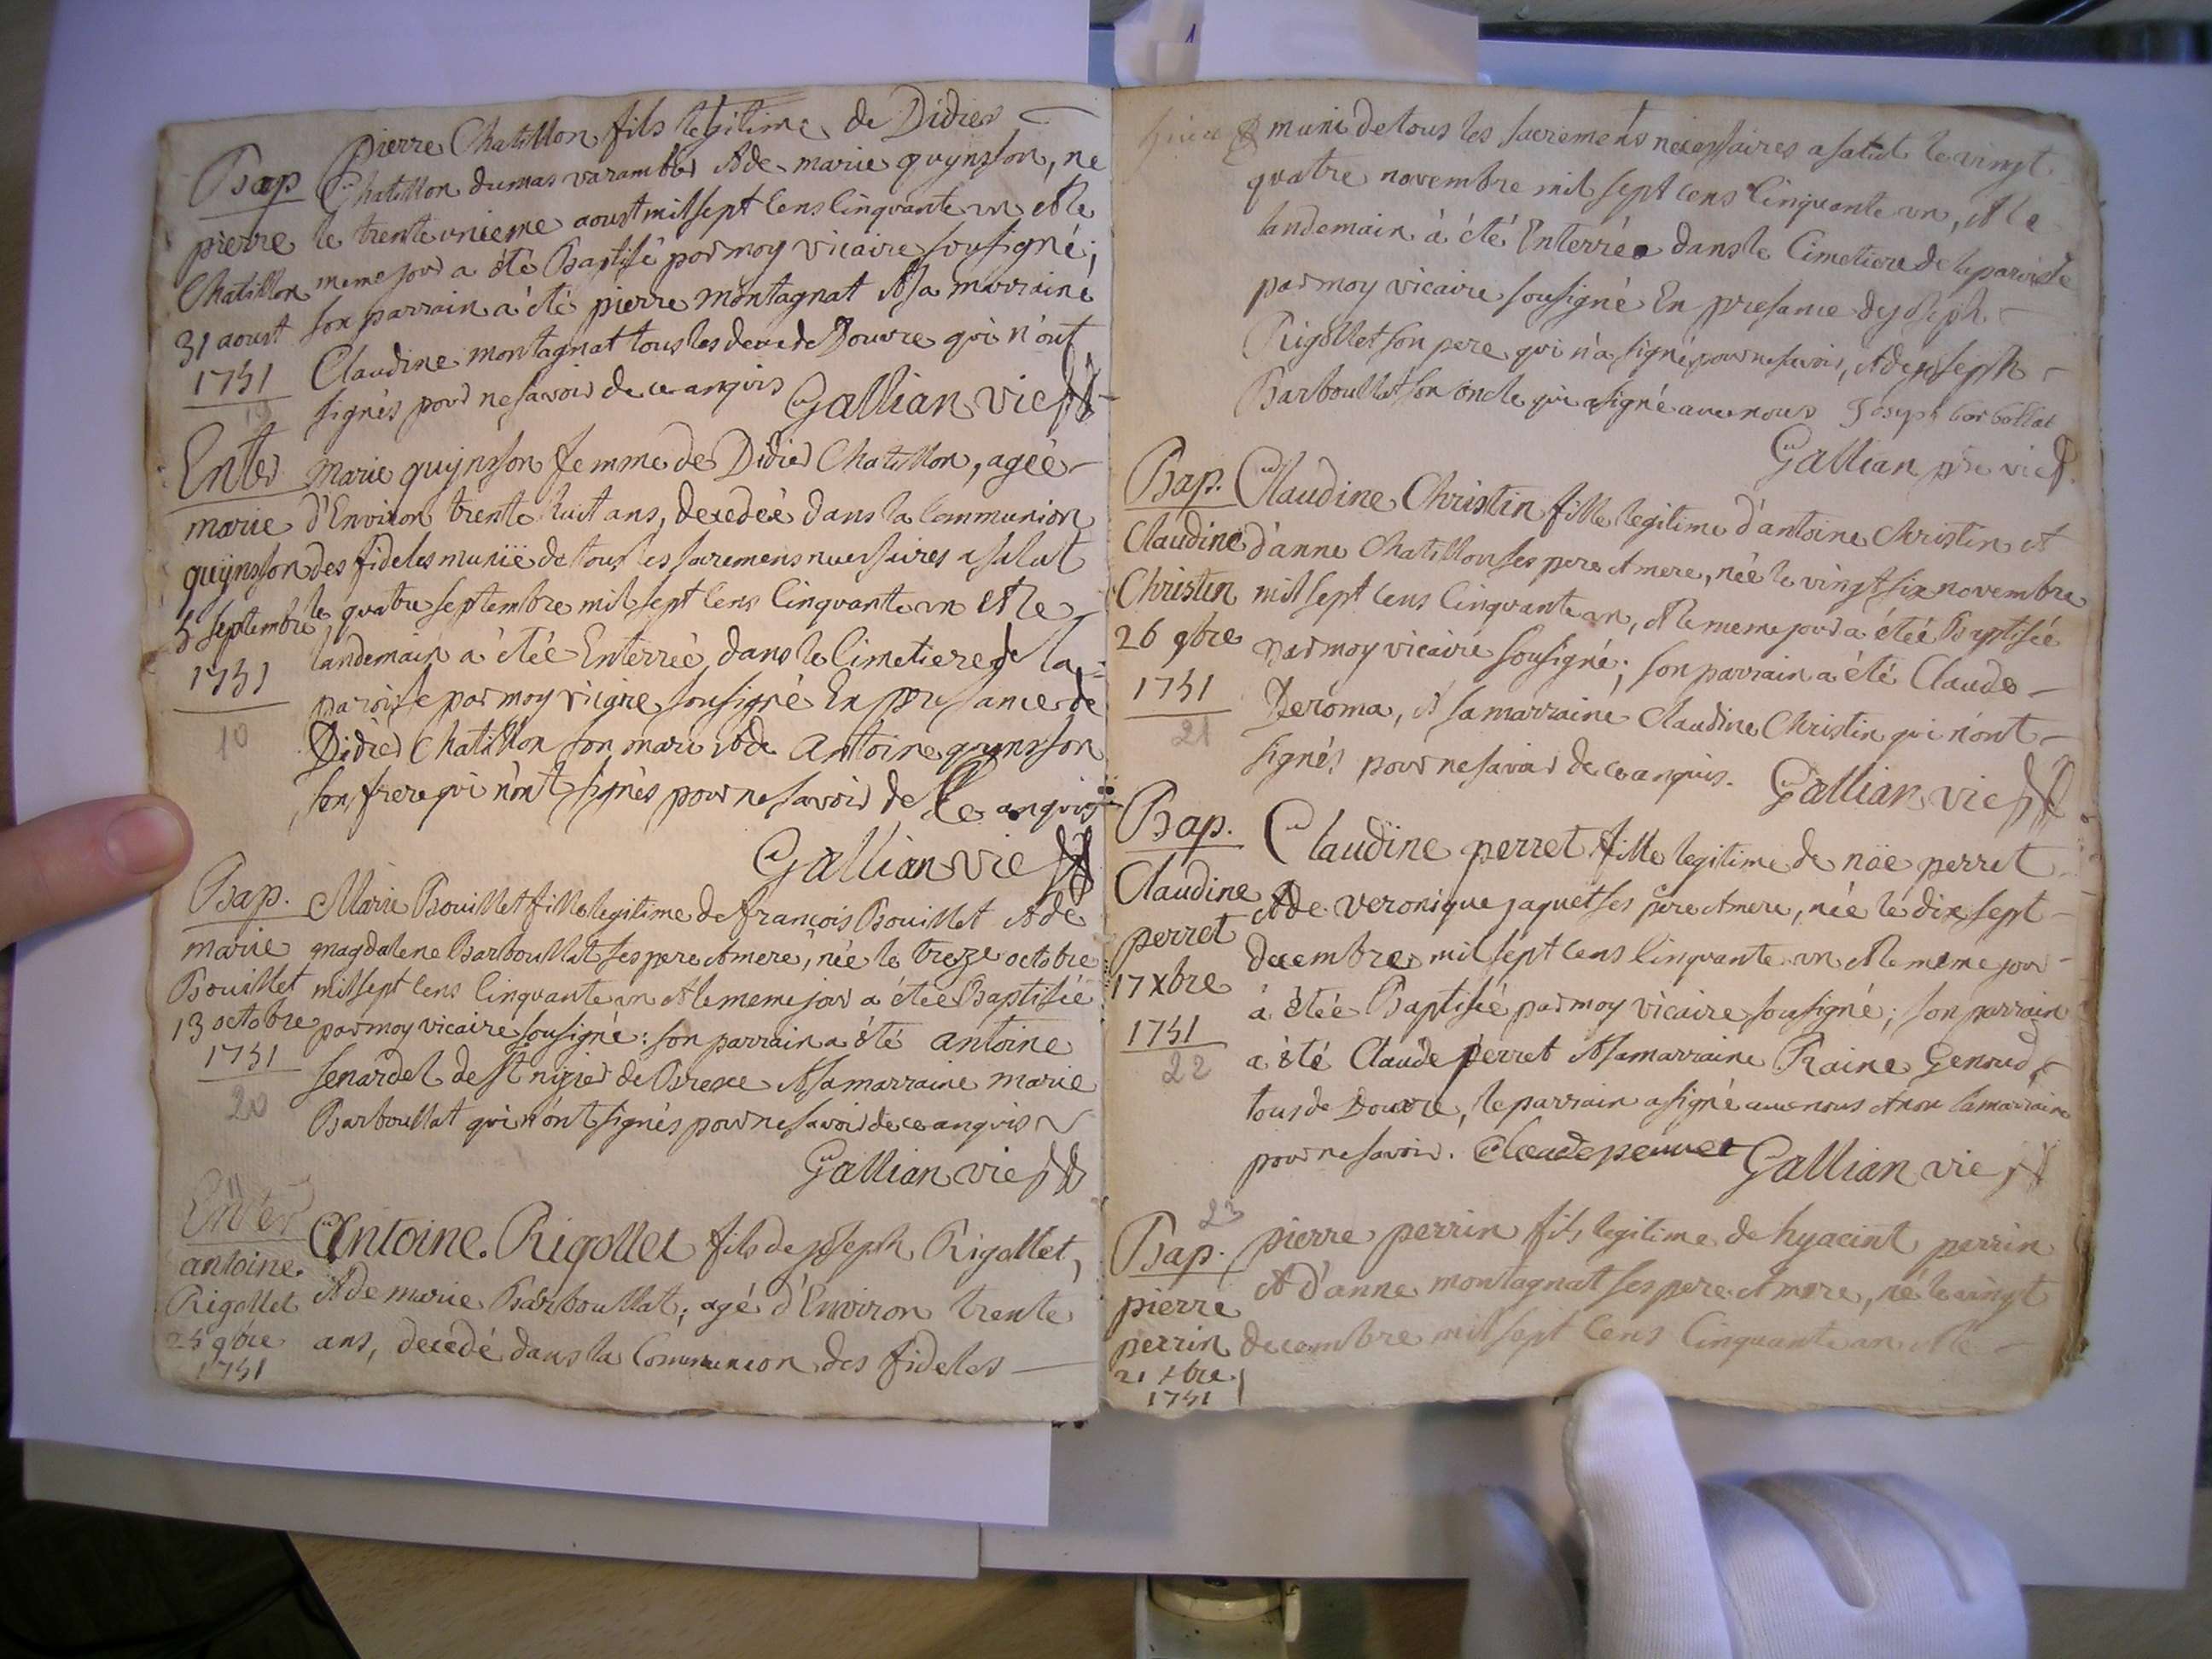 Bap
pierre
Chatillon
31 aoust
1751
19
pierre Chatillon fils legitime de Didier
Chatillon dumas varambler & de marie guynsson, ne
le trente unieme aoust mil sept cens cinquante un & le
meme jour a été Baptisé par moy vicaire sousigné;
son parrain a été pierre montagnat & sa marraine
Claudine montagnat tous les deux de Douvre qui n'ont
signés pour ne savoir de ce anquis Gallian vic
Enter
marie
guynsson
5 septembre
1751
10
marie guynsson femme de Didier Chatillon, agée
d'Environ trente huit ans, decedée dans la Communion
des fideles munië de tous les sacremens necessaires a salut
le quatre septembre mil sept cens Cinquante un & le
landemain a étéé Enterrée dans le Cimetiere de la
paroisse par moy vicaire sousigné En presance de
Didier Chatillon son mari & de Antoine guynsson
son frere qui n'ont signés pour ne savoir de Ce anquis
Gallian vic
Bap.
marie
Bouillet
13 octobre
1751
20
Marie Bouillet fille legitime de françois Bouillet & de
magdalene Barboullat ses pere & mere, née le treze octobre
mil sept cens Cinquante un & le meme jour a étéé Baptisée
par moy vicaire sousigné: son parrain a été antoine
senardet de St nizier de Bresse & sa marraine marie
Barboullat qui n'ont signés pour ne savoir de ce anquis
Gallian vic
11
Enter
antoine
Rigollet
25 9bre
1751
Antoine Rigollet fils de joseph Rigollet,
& de marie Barboullat; agé d'Environ trente
ans, decedé dans la Communion des fideles
& muni de tous les sacremens necessaires a salut le vingt
quatre novembre mil sept cens Cinquante un, & le
landemain à été Enterré dans le Cimetiere de la paroisse
par moy vicaire sousigné En presance de joseph
Rigollet son pere qui n'a signé pour ne savoir, & de joseph
Barboullat son oncle qui a signé avec nous Joseph barbollat
Gallian ptre vic
Bap.
Claudine
Christin
26 9bre
1751
21
Claudine Christin fille legitime d'antoine Christin et
d'anne Chatillon ses pere & mere, née le vingt six novembre
mil sept cens Cinquante un, & le meme jour a étéé Baptisée
par moy vicaire sousigné; son parrain a été Claude
Deroma, & sa marraine Claudine Christin qui n'ont
signés pour ne savoir de ce anquis. Gallian vic
Bap.
Claudine
perret
17 xbre
1751
22
Claudine perret fille legitime de nöe perret
& de veronique jaquet ses pere & mere, née le dix sept
decembre mil sept cens Cinquante un & le meme jour
a étéé Baptisée par moy vicaire sousigné; son parrain
a été Claude perret & sa marraine Raine Genoud,
tous de Douvre, le parrain a signé avec nous & non la marraine
pour ne savoir. Claude peinret Gallian vic
23
Bap.
pierre
perrin
21 xbre
1751
pierre perrin fils legitime de hyacint perrin
& d'anne montagnat ses pere & mere, né le vingt
decembre mil sept cens Cinquante un & le